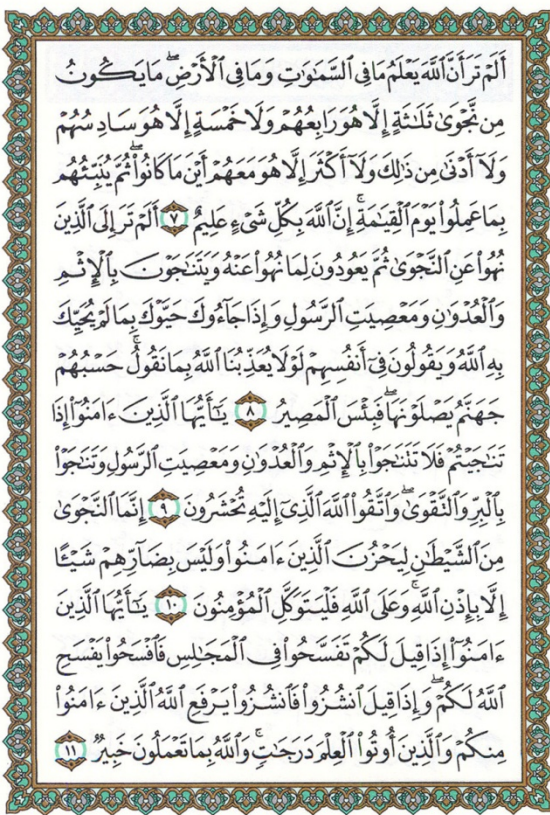 أَلَمْ تَرَ أَنَّ ٱللَّهَ يَعْلَمُ مَا فِي ٱلسَّمَٰوَٰتِ وَمَا فِي ٱلْأَرْضِۖ مَا يَكُونُ
مِن نَّجْوَىٰ ثَلَٰثَةٍ إِلَّا هُوَ رَابِعُهُمْ وَلَا خَمْسَةٍ إِلَّا هُوَ سَادِسُهُمْ
وَلَآ أَدْنَىٰ مِن ذَٰلِكَ وَلَآ أَكْثَرَ إِلَّا هُوَ مَعَهُمْ أَيْنَ مَا كَانُوا۟ۖ ثُمَّ يُنَبِّئُهُم
بِمَا عَمِلُوا۟ يَوْمَ ٱلْقِيَٰمَةِۚ إِنَّ ٱللَّهَ بِكُلِّ شَىْءٍ عَلِيمٌ ٧ أَلَمْ تَرَ إِلَى ٱلَّذِينَ
نُهُوا۟ عَنِ ٱلنَّجْوَىٰ ثُمَّ يَعُودُونَ لِمَا نُهُوا۟ عَنْهُ وَيَتَنَٰجَوْنَ بِٱلْإِثْمِ
وَٱلْعُدْوَٰنِ وَمَعْصِيَتِ ٱلرَّسُولِ وَإِذَا جَآءُوكَ حَيَّوْكَ بِمَا لَمْ يُحَيِّكَ
بِهِ ٱللَّهُ وَيَقُولُونَ فِىٓ أَنفُسِهِمْ لَوْلَا يُعَذِّبُنَا ٱللَّهُ بِمَا نَقُولُۚ حَسْبُهُمْ
جَهَنَّمُ يَصْلَوْنَهَاۖ فَبِئْسَ ٱلْمَصِيرُ ٨ يَٰٓأَيُّهَا ٱلَّذِينَ ءَامَنُوٓا۟ إِذَا
تَنَٰجَيْتُمْ فَلَا تَتَنَٰجَوْا۟ بِٱلْإِثْمِ وَٱلْعُدْوَٰنِ وَمَعْصِيَتِ ٱلرَّسُولِ وَتَنَٰجَوْا۟
بِٱلْبِرِّ وَٱلتَّقْوَىٰۖ وَٱتَّقُوا۟ ٱللَّهَ ٱلَّذِىٓ إِلَيْهِ تُحْشَرُونَ ٩ إِنَّمَا ٱلنَّجْوَىٰ
مِنَ ٱلشَّيْطَٰنِ لِيَحْزُنَ ٱلَّذِينَ ءَامَنُوا۟ وَلَيْسَ بِضَآرِّهِمْ شَيْـًٔا
إِلَّا بِإِذْنِ ٱللَّهِۚ وَعَلَى ٱللَّهِ فَلْيَتَوَكَّلِ ٱلْمُؤْمِنُونَ ١٠ يَٰٓأَيُّهَا ٱلَّذِينَ
ءَامَنُوٓا۟ إِذَا قِيلَ لَكُمْ تَفَسَّحُوا۟ فِى ٱلْمَجَٰلِسِ فَٱفْسَحُوا۟ يَفْسَحِ
ٱللَّهُ لَكُمْۖ وَإِذَا قِيلَ ٱنشُزُوا۟ فَٱنشُزُوا۟ يَرْفَعِ ٱللَّهُ ٱلَّذِينَ ءَامَنُوا۟
مِنكُمْ وَٱلَّذِينَ أُوتُوا۟ ٱلْعِلْمَ دَرَجَٰتٍۚ وَٱللَّهُ بِمَا تَعْمَلُونَ خَبِيرٌ ١١